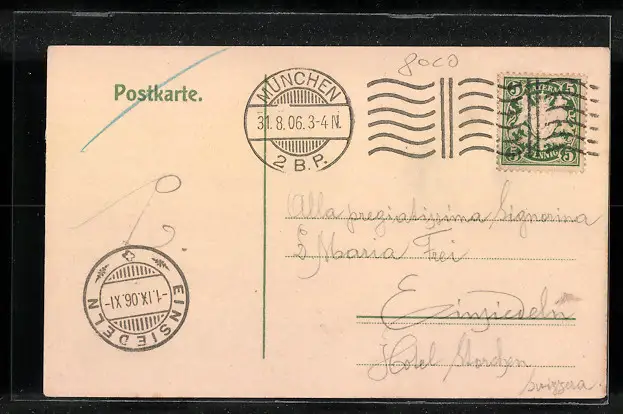 goco
Postkarte.
MÜNCHEN
31.8.06.3-4 N.
2 B.P.
BAYERN
5 5
5 PFENNIG 5
Alla pregiatissima Signorina
Maria Frei
Einsiedeln
Hotel Storchen
Svizzera
EINSIEDELN
-1.IX.06.XI-